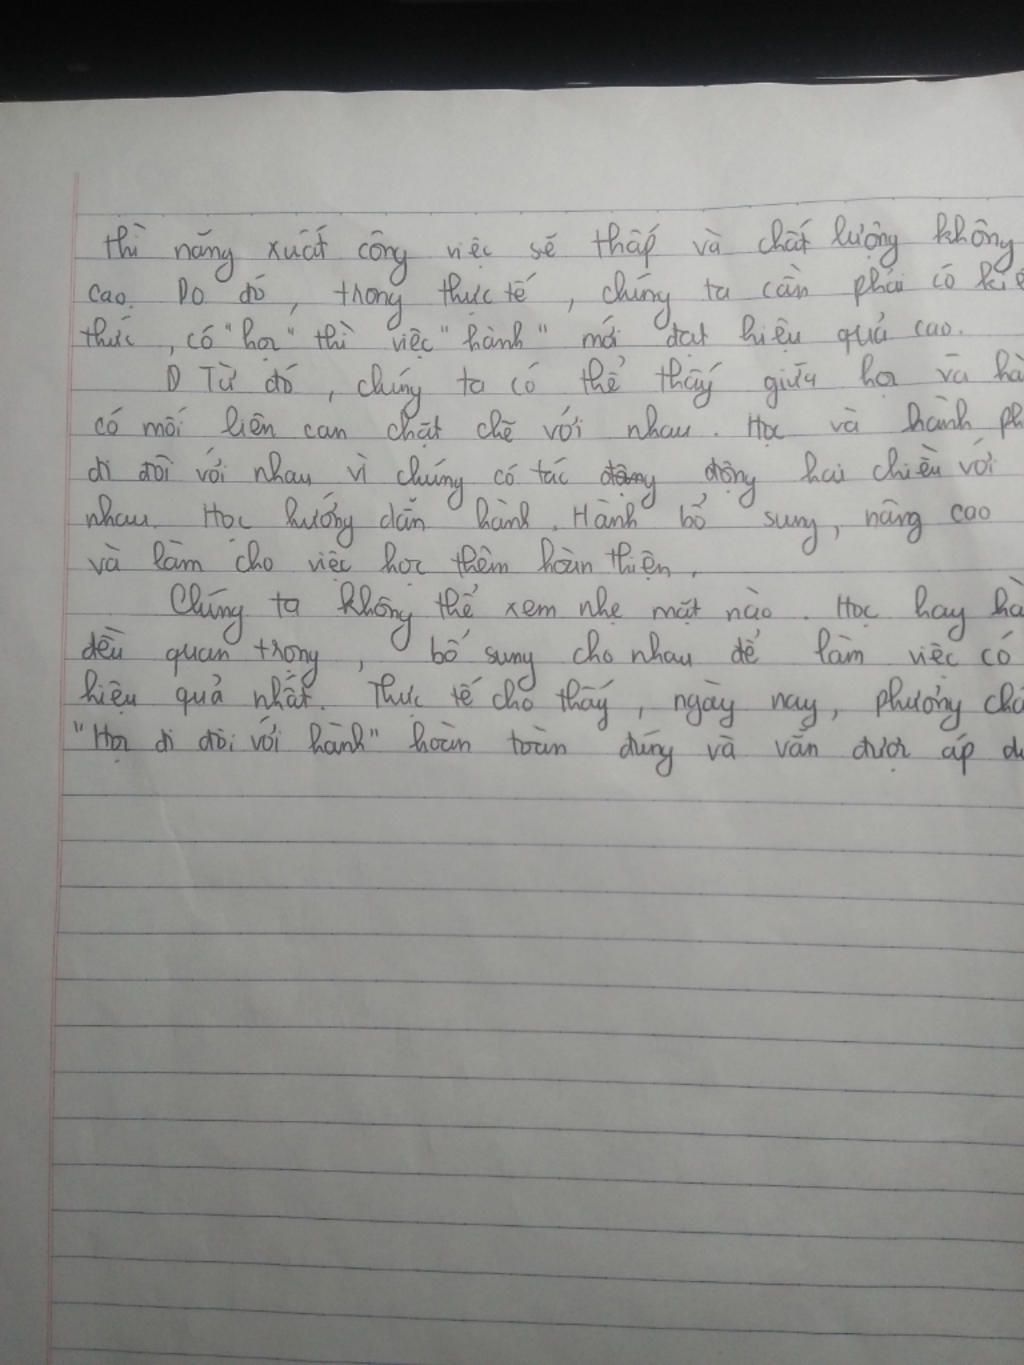 thì năng xuất công việc sẽ thấp và chất lượng không
cao. Do đó, trong thực tế, chúng ta cần phải có kiế
thức, có "học" thì việc "hành" mới đạt hiệu quả cao.
Từ đó, chúng ta có thể thấy giữa học và hà
có mối liên can chặt chẽ với nhau. Học và hành ph
đi đôi với nhau vì chúng có tác động hai chiều với
nhau. Học hướng dẫn hành. Hành bổ sung, nâng cao
và làm cho việc học thêm hoàn thiện.
Chúng ta không thể xem nhẹ mặt nào. Học hay hà
đều quan trọng, bổ sung cho nhau để làm việc có
hiệu quả nhất. Thực tế cho thấy, ngày nay, phương châ
"Học đi đôi với hành" hoàn toàn đúng và vẫn được áp dụ